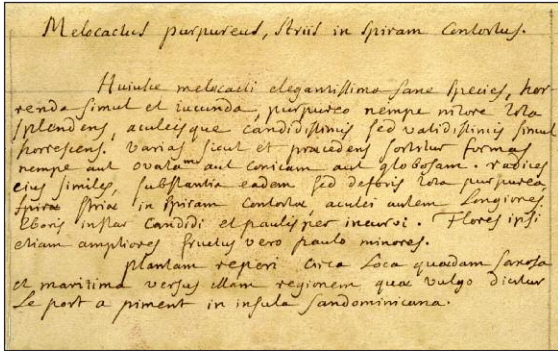 Melocactus purpureus, striis in spiram contortus.
Huiusce melocacti elegantissima sane species, hor
renda simul et iucunda, purpureo nempe nitore tota
splendens, aculeisque candidissimis sed validissimis simul
horrescens. varias sicut et præcedens sortitur formas
nempe aut ovatam aut conicam aut globosam. radices
eius similes, substantia eadem sed deforis tota purpurea,
striæ in spiram contortæ aculei autem longiores
eboris instar candidi et paulisper incurvi. Flores ipsi
etiam ampliores fructus vero paulo minores.
plantam reperi circa loca quædam saxosa
et maritima versus illam regionem quæ vulgo dicitur
Le port a piment in insula sandominicana.